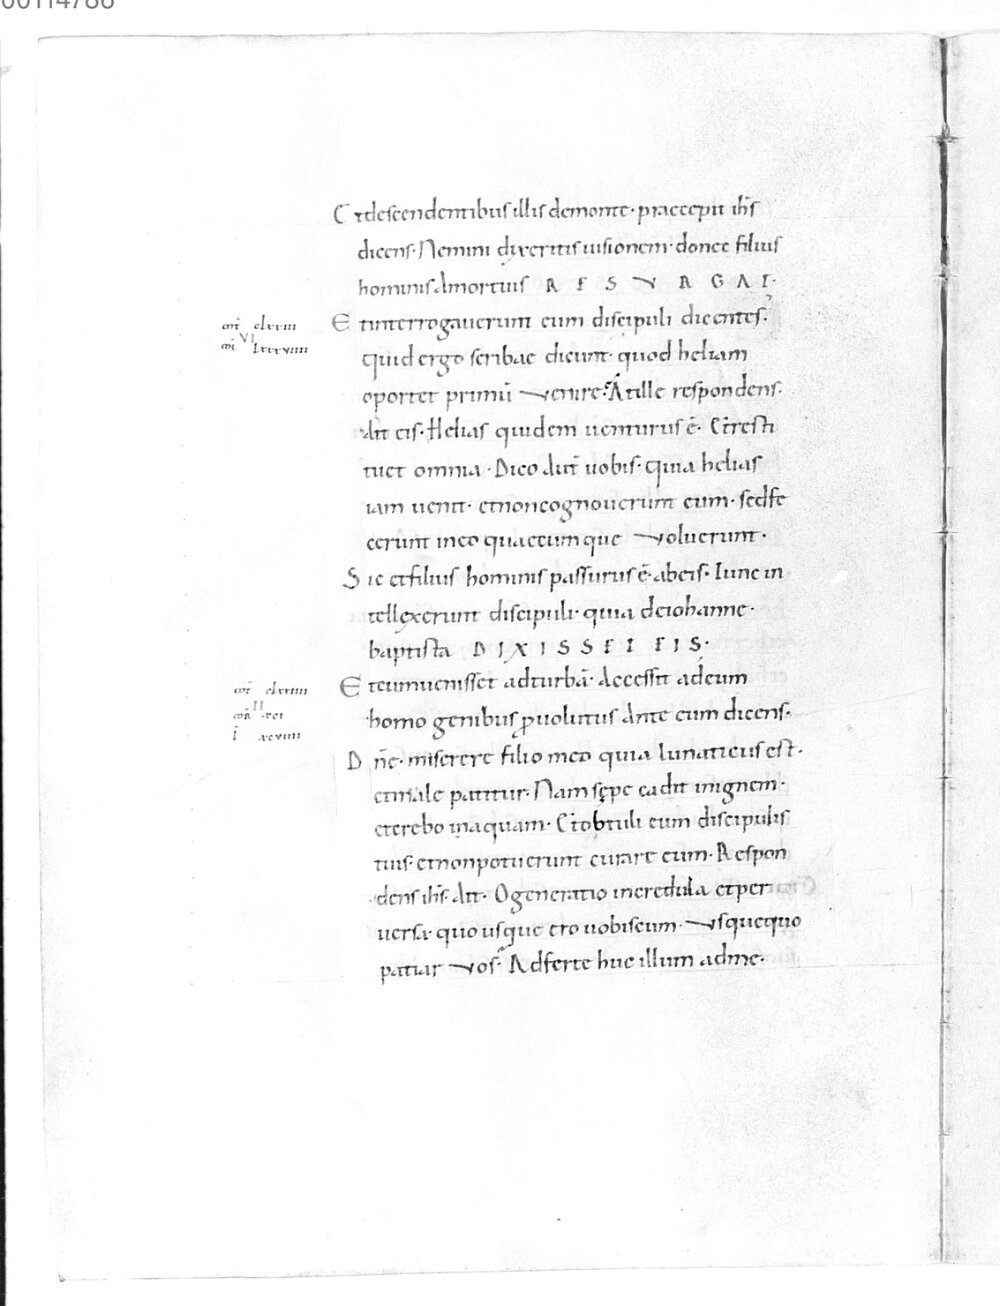 00114786
Et descendentibus illis demonte· praecepit ih̄s
dicens· Nemini dixeritis uisionem· donec filius
hominis Amortuis RESVRGAT·
Et interrogauerunt eum discipuli dicentes·
mt̄ clxxiii
quid ergo scribae dicunt· quod heliam
VI
oportet primū venire· At ille respondens·
Ait eis· Helias quidem uenturus ē· Et resti
tuet omnia· Dico aut̄ uobis· quia helias
iam uenit· et non cognouerunt eum· sed fe
cerunt ineo quaecumque voluerunt·
Sic et filius hominis passurus ē· abeis· Tunc in
tellexerunt discipuli· quia deiohanne·
baptista DIXISSET EIS·
Et cumuenisset adturbā· Accessit adeum
mt̄ clxxiiii
homo genibus ꝓuolutus Ante eum dicens·
II
mr̄ xci
Dn̄e· miserere filio meo quia lunaticus est·
l̄ xcviiii
et male patitur· Nam sępe cadit inignem·
et crebo inaquam· Et obtuli eum discipulis
tuis· et non potuerunt curare eum· Respon
dens ih̄s Ait· O generatio incredula et per
uersa· quo usque ero uobiscum· vsquequo
patiar vos· Adferte huc illum adme·